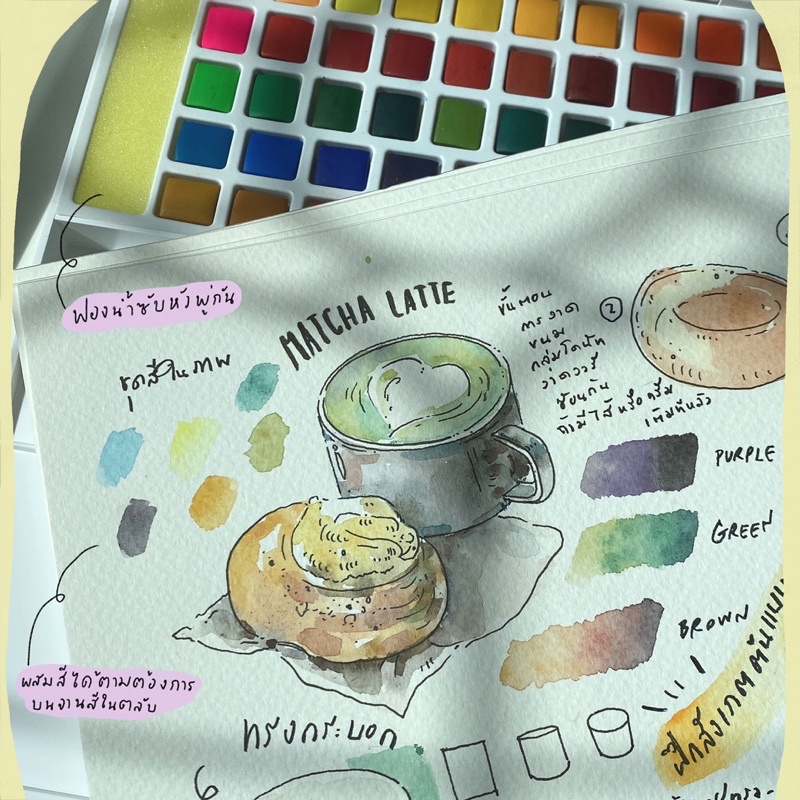 ฟองน้ำซับหัวพู่กัน
MATCHA LATTE
ชุดสีในภาพ
ขั้นตอน
การวาด
ขนม
กลุ่มโดนัท
ซ้อนกัน
ถ้ามีไส้หรือครีม
2
PURPLE
GREEN
BROWN
ผสมสีได้ตามต้องการ
บนจานสีในตลับ
ทรงกระบอก
ฝึกสังเกตต้นแบบ